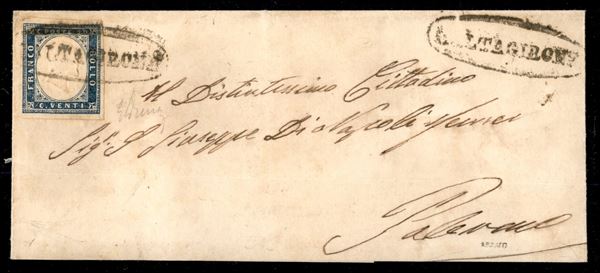 C. POSTE 20
FRANCO
BOLLO
C. VENTI
LTAGIRONE
C LTAGIRONE
Al Distintissimo Cittadino
Sig.r D. Giuseppe Di Napoli
Palermo